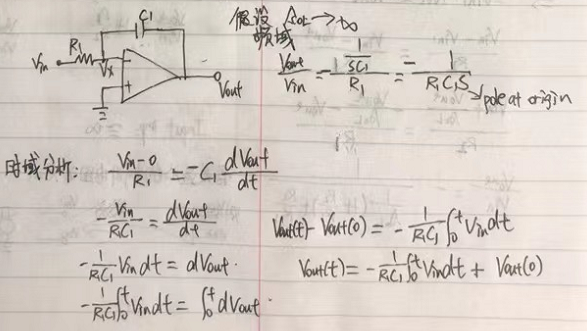 C1
R1
Vin
Vx
Vout
假设 AOL→∞
频域
Vout/Vin = (1/SC1)/R1 = -1/(R1C1S)
pole at origin
时域分析: (Vin-0)/R1 = -C1 dVout/dt
-Vin/(R1C1) = dVout/dt
-1/(R1C1) Vin dt = dVout.
-1/(R1C1) ∫0^t Vin dt = ∫0^t dVout.
Vout(t) - Vout(0) = -1/(R1C1) ∫0^t Vin dt
Vout(t) = -1/(R1C1) ∫0^t Vin dt + Vout(0)